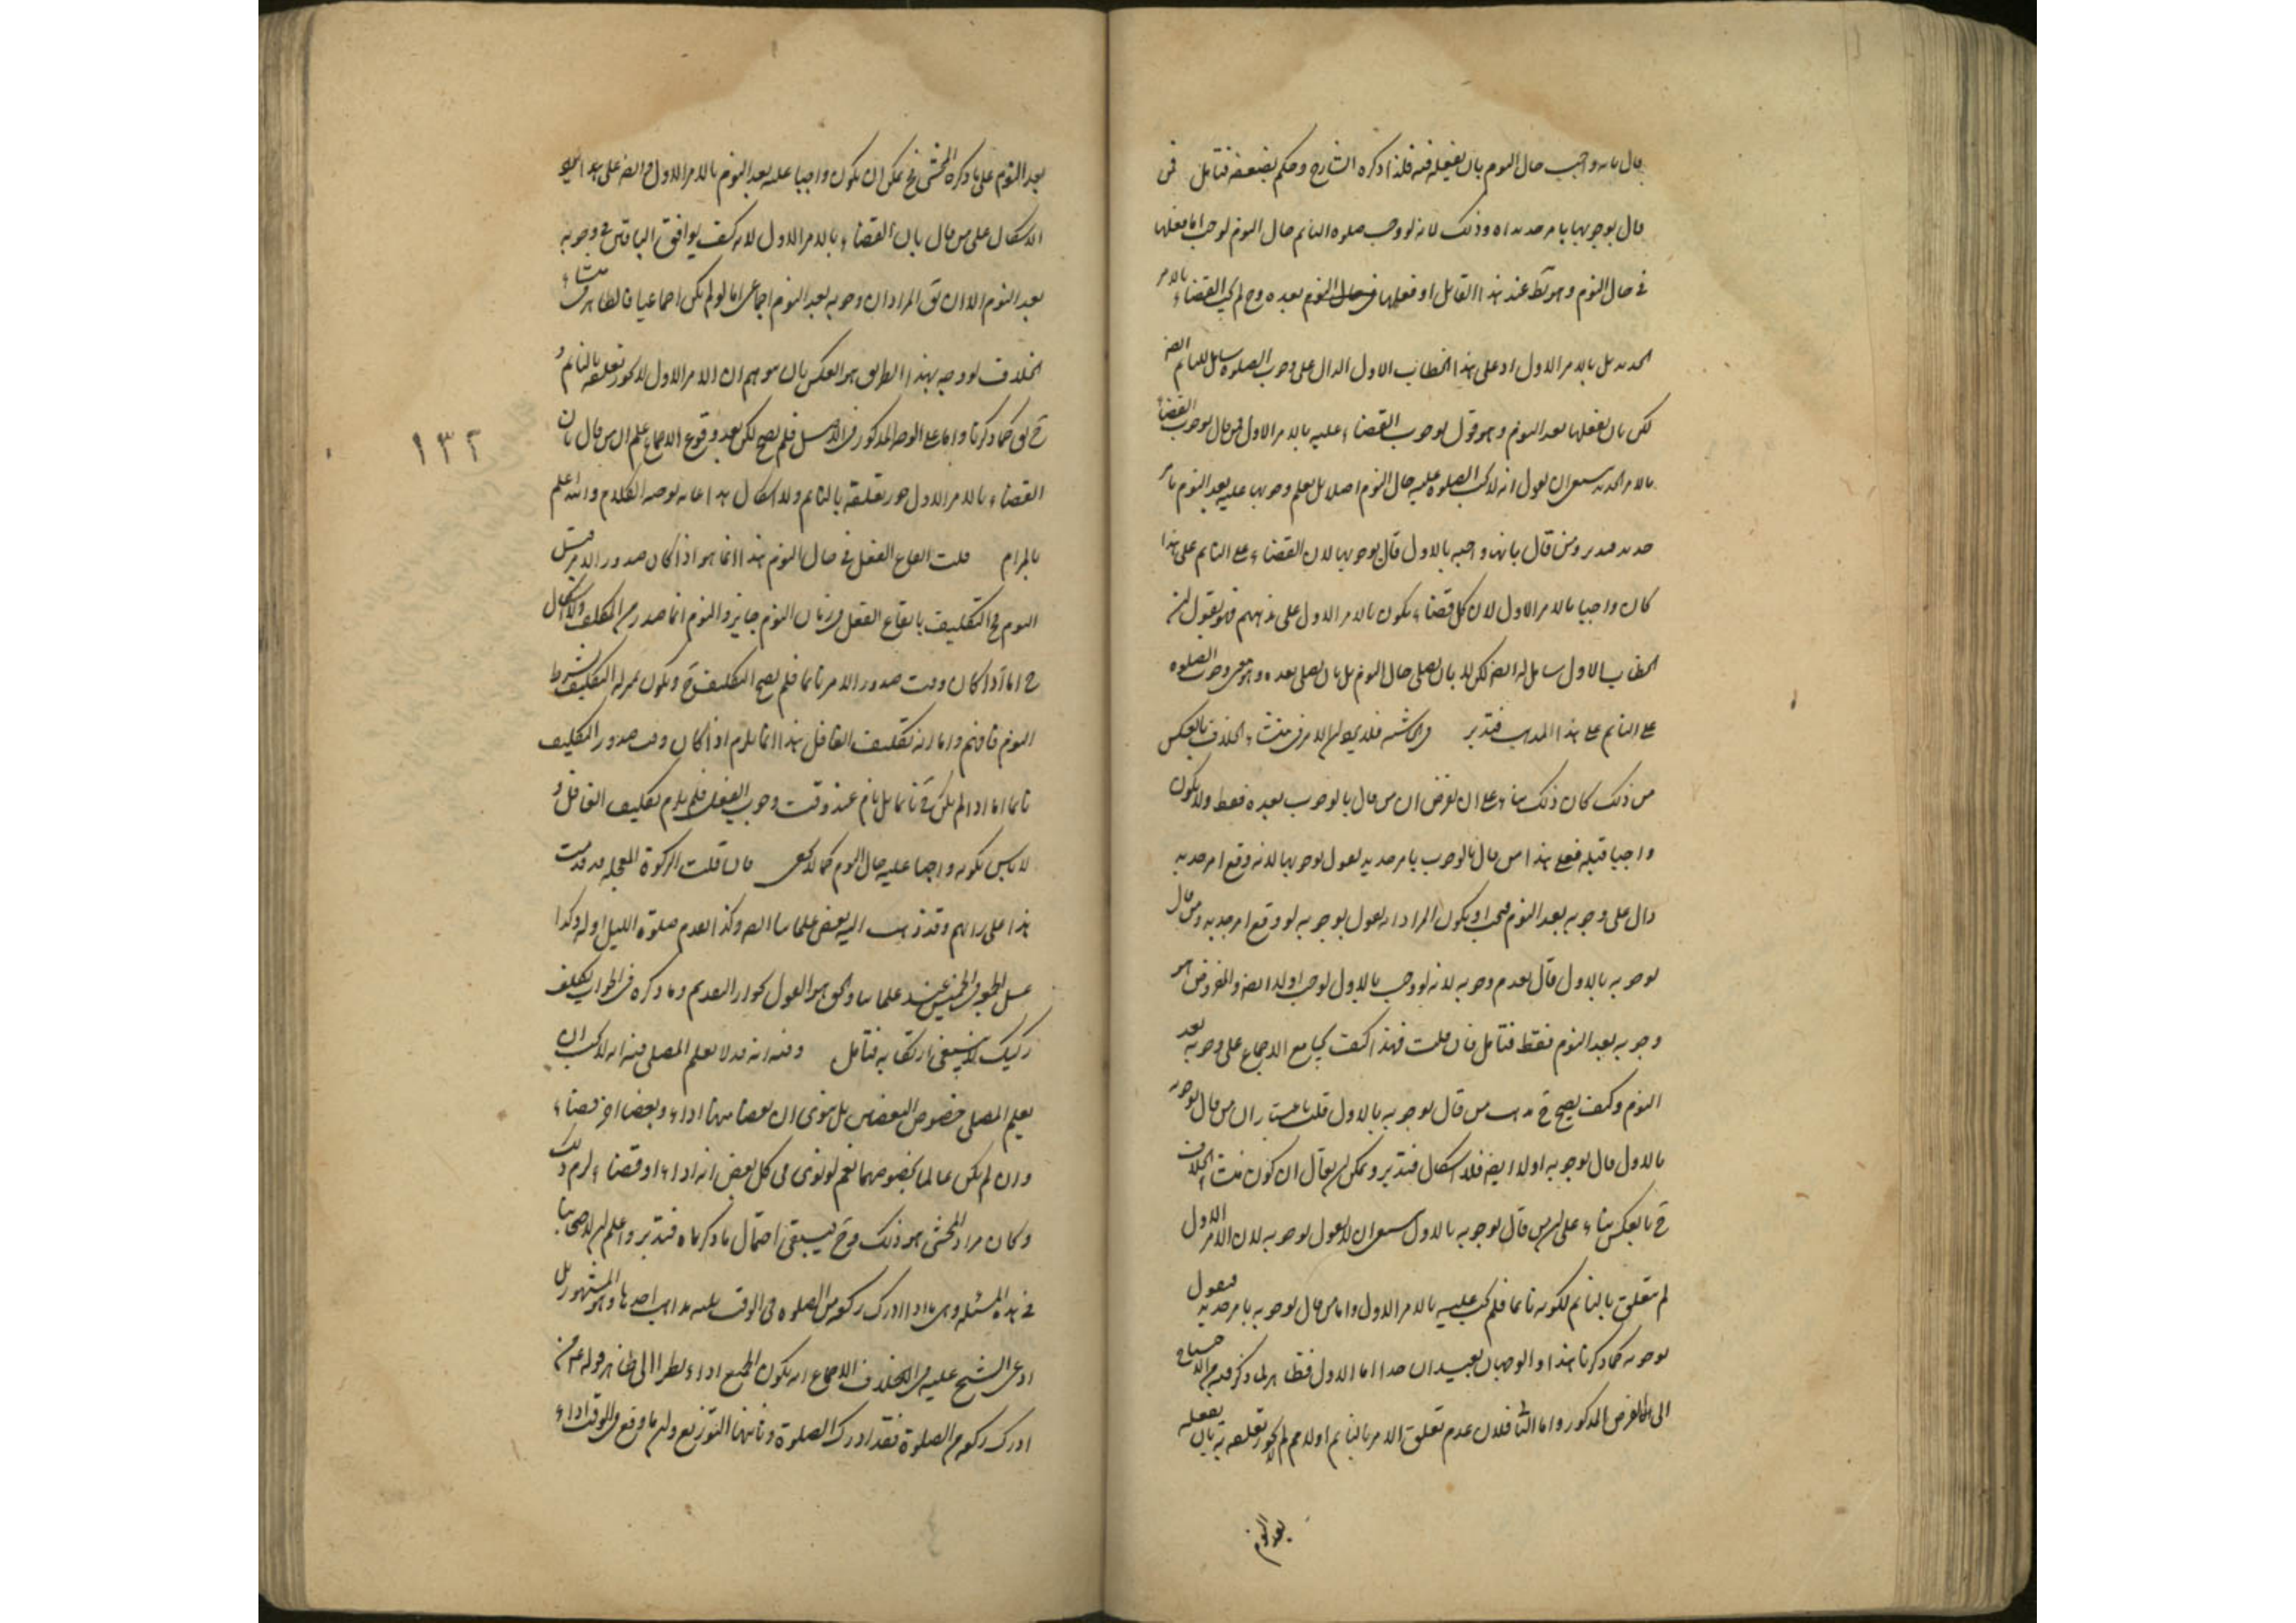 قال بانه واجب حال النوم بان يفعله فيه فلذا ذكره الشارح وحكم بضعفه فتامل فمن
قال بوجوبها بامر جديد اه وذلك لانه لو وجب صلوة النائم حال النوم لوجب اما فعلها
في حال النوم وهو بط عند هذا القائل او فعلها في حال النوم بعده وح لم يكن القضاء بالامر
الجديد بل بالامر الاول اذ على هذا الخطاب الاول الدال على وجوب الصلوة شامل للنائم ايضا
لكن بان يفعلها بعد النوم وهو قول بوجوب القضاء عليه بالامر الاول فمن قال بوجوب القضاء
بالامر الجديد ينبغي ان يقول انه لا يجب الصلوة عليه حال النوم اصلا بل يعلم وجوبها عليه بعد النوم بامر
جديد فتدبر ومن قال بانها واجبة بالاول قال بوجوبها لان القضاء على النائم على هذا
كان واجبا بالامر الاول لان كل قضاء يكون بالامر الاول على مذهبهم فهو يقول ان
الخطاب الاول شامل له ايضا لكن لا بان يصلي حال النوم بل بان يصلي بعده وهو معنى وجوب الصلوة
على النائم على هذا المذهب فتدبر في الحاشية فلا يكون الامر في منشاء الخلاف بالعكس
من ذلك كان ذلك بناء على ان يفرض ان من قال بالوجوب بعده فقط ولا يكون
واجبا قبله فعلى هذا من قال بالوجوب بامر جديد يقول بوجوبها لانه وقع امر جديد
دال على وجوبه بعد النوم فيجب او يكون المراد انه يقول بوجوبه لو وقع امر جديد ومن قال
بوجوبه بالاول قال بعدم وجوبه لانه لو وجب بالاول لوجب اولا ايضا والمفروض هو
وجوبه بعد النوم فقط فتامل فان قلت فهذا كيف يجامع الاجماع على وجوبه بعد
النوم وكيف يصح ح مذهب من قال بوجوبه بالاول قلت باعتبار ان من قال بوجوبه
بالاول قال بوجوبه اولا ايضا فلا اشكال فتدبر ويمكن ان يقال ان كون منشاء الخلاف
ح بالعكس بناء على ان من قال بوجوبه بالاول ينبغي ان لا يقول بوجوبه لان الامر الاول
لم يتعلق بالنائم لكونه نائما فلم يجب عليه بالامر الاول واما من قال بوجوبه بامر جديد فيقول
بوجوبه كما ذكرنا هذا والوجهان بعيدان جدا اما الاول فظاهر لما ذكر فيه من الاحتياج
الى الفرض المذكور واما الثا فلان عدم تعلق الامر بالنائم اولا مم لم لا يجوز تعلقه به بان يفعله
بعد النوم
بعد النوم على ما ذكره المحشي فح يمكن ان يكون واجبا عليه بعد النوم بالامر الاول وايضا على هذا
الاشكال على من قال بان القضاء بالامر الاول لانه كيف يوافق الباقين في وجوبه
بعد النوم الا ان يق المراد ان وجوبه بعد النوم اجماعي اما لو لم يكن اجماعيا فالظاهر منشاء
الخلاف لو وجه بهذا الطريق هو العكس بان يتوهم ان الامر الاول لا يجوز تعلقه بالنائم و
ح يق كما ذكرنا واما على الوجه المذكور في الاصل فلم يصح لكن بعد وقوع الاجماع علم ان من قال بان
القضاء بالامر الاول جوز تعلقه بالنائم ولا اشكال هذا غاية توجيه الكلام والله اعلم
بالمرام قلت ايقاع الفعل في حال النوم هذا انما هو اذا كان صدور الامر قبل
النوم فح التكليف بايقاع الفعل في زمان النوم جايز والنوم انما صدر من المكلف ولا اشكال
ح اما اذا كان وقت صدور الامر نائما فلم يصح التكليف ح ويكون بمنزلة التكليف بشرط
النوم فافهم واما انه تكليف الغافل هذا انما يلزم اذا كان وقت صدور التكليف
نائما اما اذا لم يكن ح نائما بل نام عند وقت وجوب الفعل فلم يلزم تكليف الغافل و
لا باس بكونه واجبا عليه حال النوم كما لا يخفى فان قلت الزكوة المعجلة قد قدمت
هذا على رايهم وقد ذهب اليه بعض علمائنا ايضا وكذا تقديم صلوة الليل اوله وكذا
غسل الجمعة في الخميس عند علمائنا والحق هو القول بجواز التقديم وما ذكره في الجواب تكلف
ركيك لا ينبغي ارتكابه فتامل وفيه انه قد لا يعلم المصلي فيه انه لا يجب ان
يعلم المصلي خصوص البعضين بل ينوي ان بعضا منها اداء وبعضا اخر قضاء
وان لم يكن عالما بخصوصهما نعم لو نوى في كل بعض انه اداء او قضاء لزم ذلك
وكان مراد المحشي هو ذلك وح ليبقى احتمال ما ذكرناه فتدبر واعلم ان لاصحابنا
في هذه المسئلة وهي ما اذا ادرك ركعة من الصلوة في الوقت ثلثة مذاهب احدها وهو المشهور بل
ادعى الشيخ عليه في الخلاف الاجماع انه يكون الجميع اداء نظرا الى ظاهر قوله ع من
ادرك ركعة من الصلوة فقد ادرك الصلوة وثانيها التوزيع وان ما وقع في الوقت اداء
١٣٢